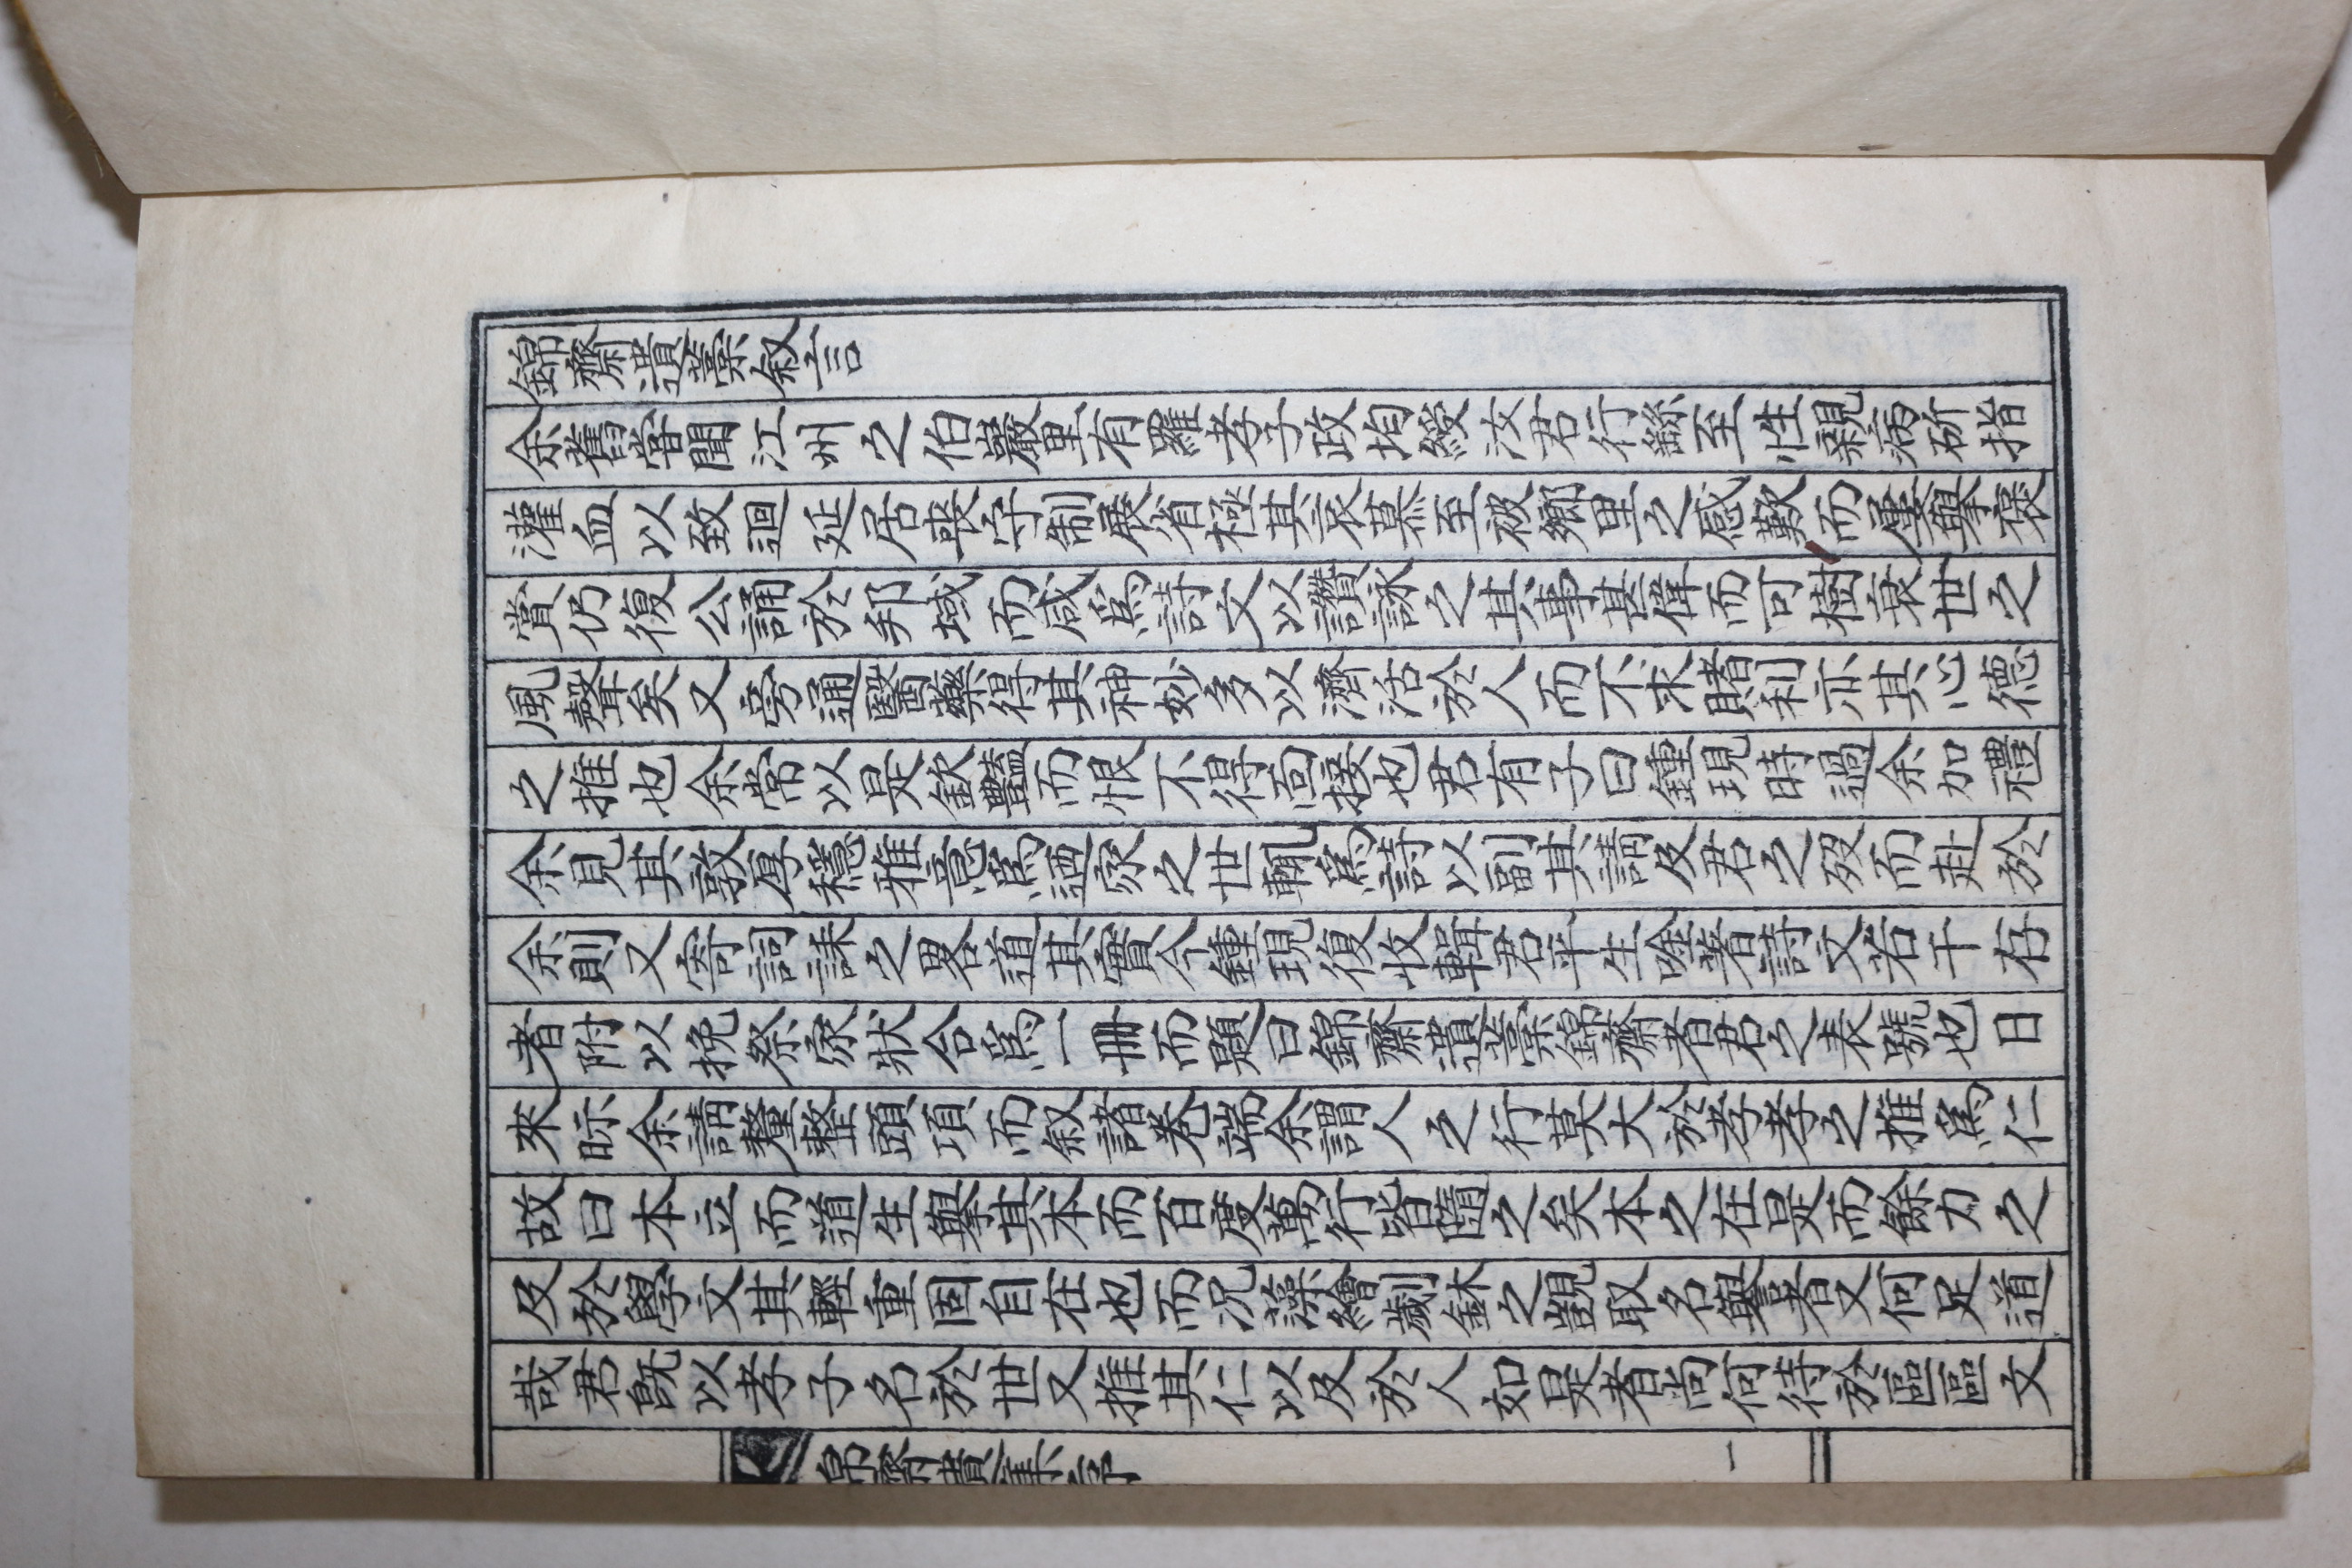 錦齋遺藁叙言
余舊嘗聞江州之伯巖里有羅孝子政均綏汝君行繇至性親病斫指
灌血以致迴延居喪守制展省極其哀慕至被鄕里之感歎而屢擧褒
賞仍復公誦於邦域而咸爲詩文以讚詠之其事甚偉而可樹衰世之
風聲矣又旁通醫藥得其神妙多以濟活於人而不求賭利亦其心德
之推也余常以是欽艶而恨不得面接也君有子曰鍾現時過余加禮
余見其敦厚穩雅意爲迺家之世輒爲詩以副其請及君之歿而赴於
余則又寄詞誄之畧道其實今鍾現復收輯君平生唫著詩文若干存
者附以挽祭家狀合爲一冊而題曰錦齋遺藁錦齋者君之表號也日
來眎余請釐整頭項而叙諸卷端余謂人之行莫大於孝孝之推爲仁
故曰本立而道生擧其本而百度萬行皆隨之矣本之在是而餘力之
及於學文其輕重固自在也而况藻繪劌鉥之覬取名譽者又何足道
哉君旣以孝子名於世又推其仁以及於人如是者尙何待於區區文
錦齋遺藁序
一